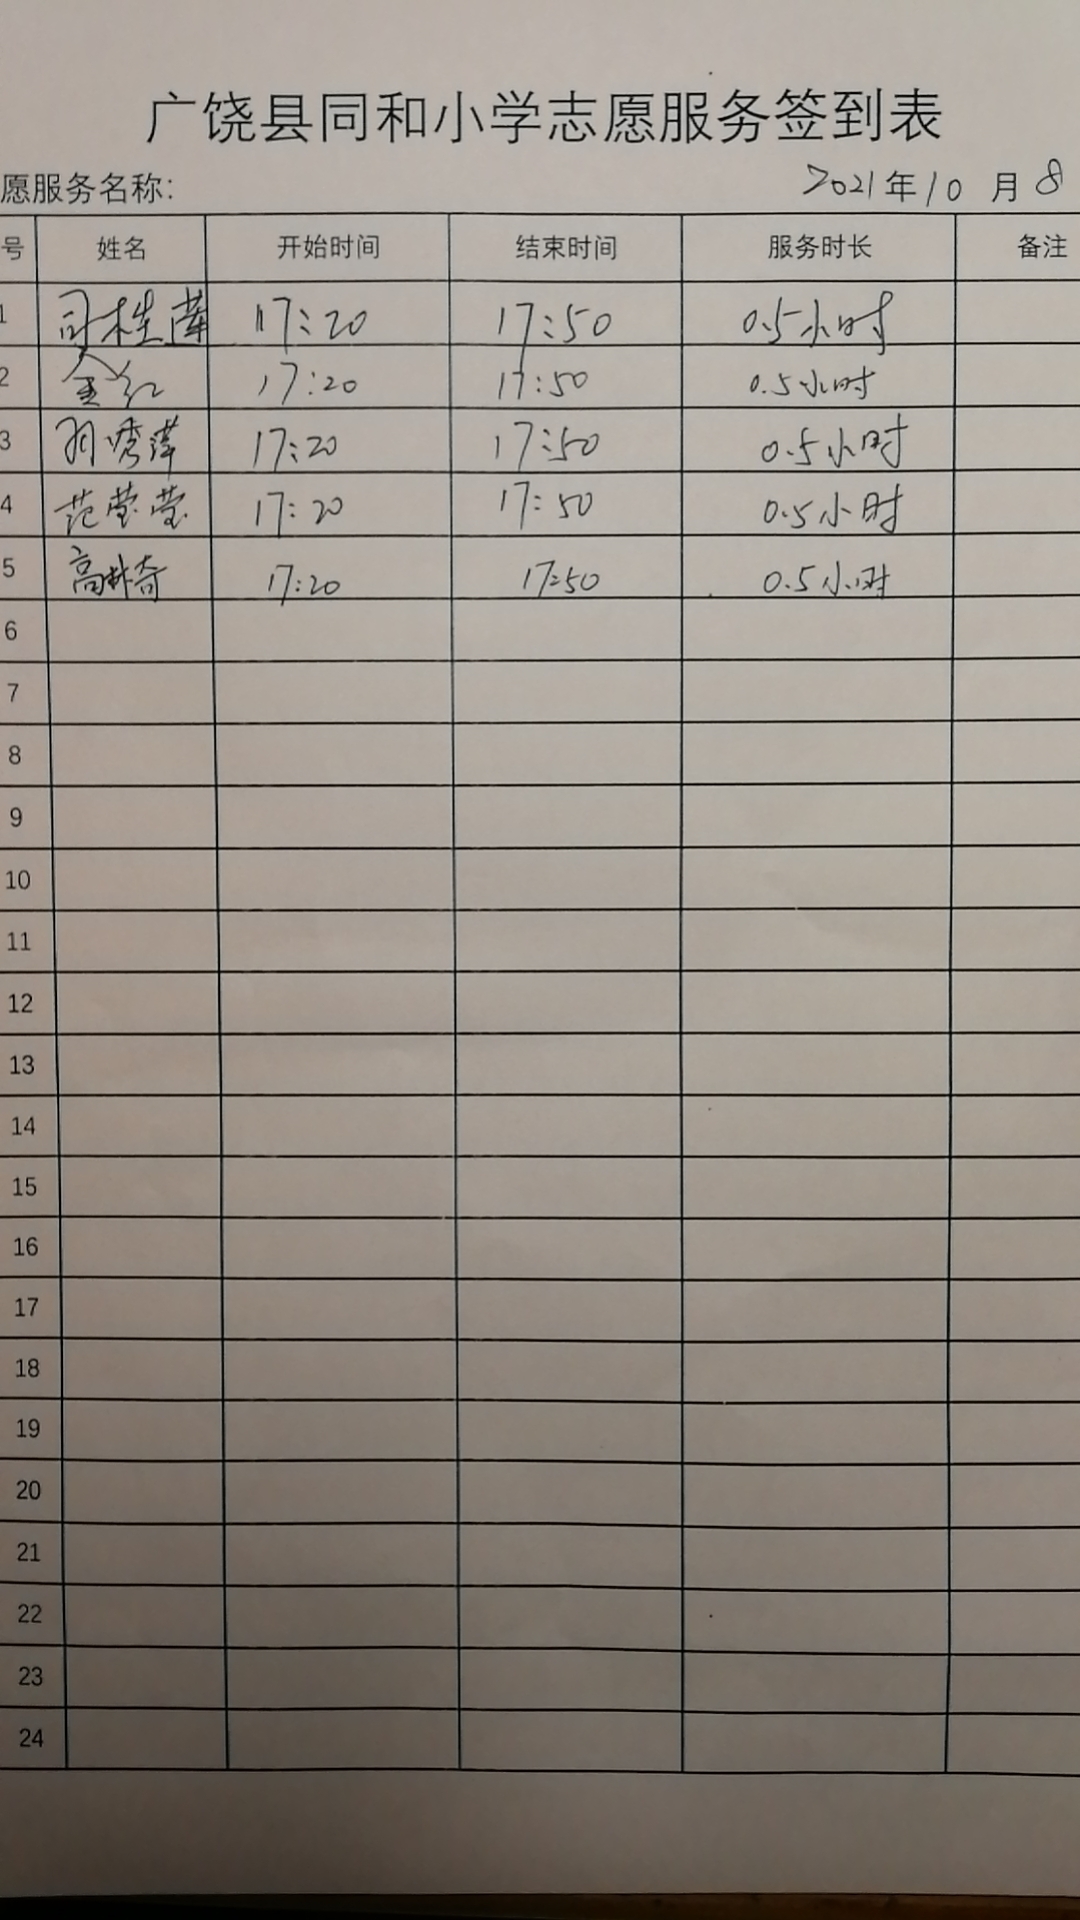 广饶县同和小学志愿服务签到表
愿服务名称：
2021年10月8
号 姓名 开始时间 结束时间 服务时长 备注
1 司桂莲 17:20 17:50 0.5小时
2 金红 17:20 17:50 0.5小时
3 秀萍 17:20 17:50 0.5小时
4 范莹莹 17:20 17:50 0.5小时
5 高 奇 17:20 17:50 0.5小时
6
7
8
9
10
11
12
13
14
15
16
17
18
19
20
21
22
23
24